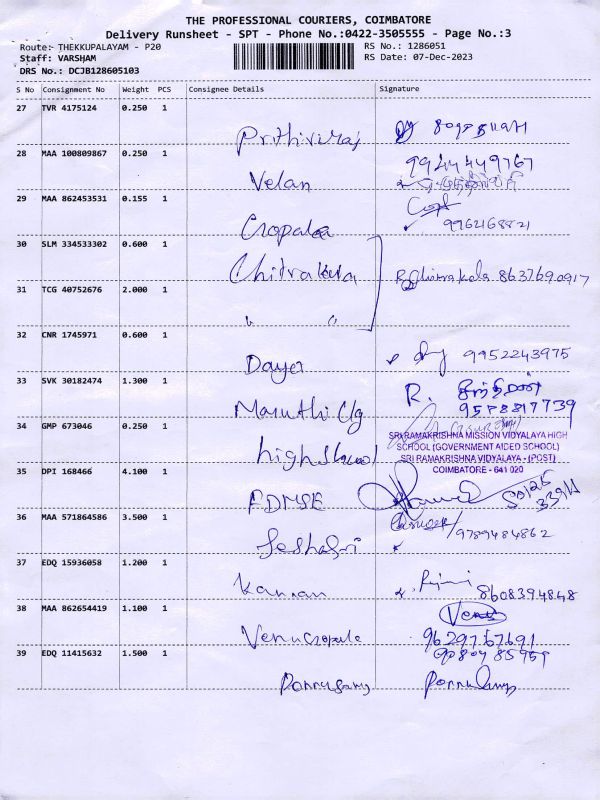 THE PROFESSIONAL COURIERS, COIMBATORE
Delivery Runsheet - SPT - Phone No.:0422-3505555 - Page No.:3
Route: THEKKUPALAYAM - P20
RS No.: 1286051
Staff: VARSHAM
RS Date: 07-Dec-2023
DRS No.: DCJB128605103
S No Consignment No Weight PCS Consignee Details Signature
27 TVR 4175124 0.250 1
Prithiviraj
28 MAA 100809867 0.250 1
9944449767
Velan
29 MAA 862453531 0.155 1
9962168821
30 SLM 334533302 0.600 1
Chitrakala
R. Chitrakala 8637690917
31 TCG 40752676 2.000 1
" "
32 CNR 1745971 0.600 1
9952243975
33 SVK 30182474 1.300 1
R.
Maruthi Clg
34 GMP 673046 0.250 1
SRI RAMAKRISHNA MISSION VIDYALAYA HIGH
SCHOOL (GOVERNMENT AIDED SCHOOL)
SRI RAMAKRISHNA VIDYALAYA - (POST)
COIMBATORE - 641 020
High School
35 DPI 168466 4.100 1
36 MAA 571864586 3.500 1
9789484862
Seshadri
37 EDQ 15936058 1.200 1
Kannan
8608394848
38 MAA 862654419 1.100 1
Venu
Venu Gopale
9629767691
39 EDQ 11415632 1.500 1
Ponnusamy